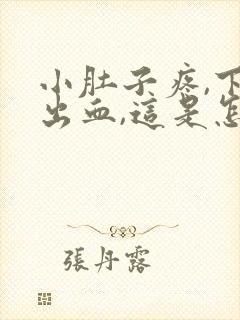 小肚子疼,下
出血,這是怎
張丹露